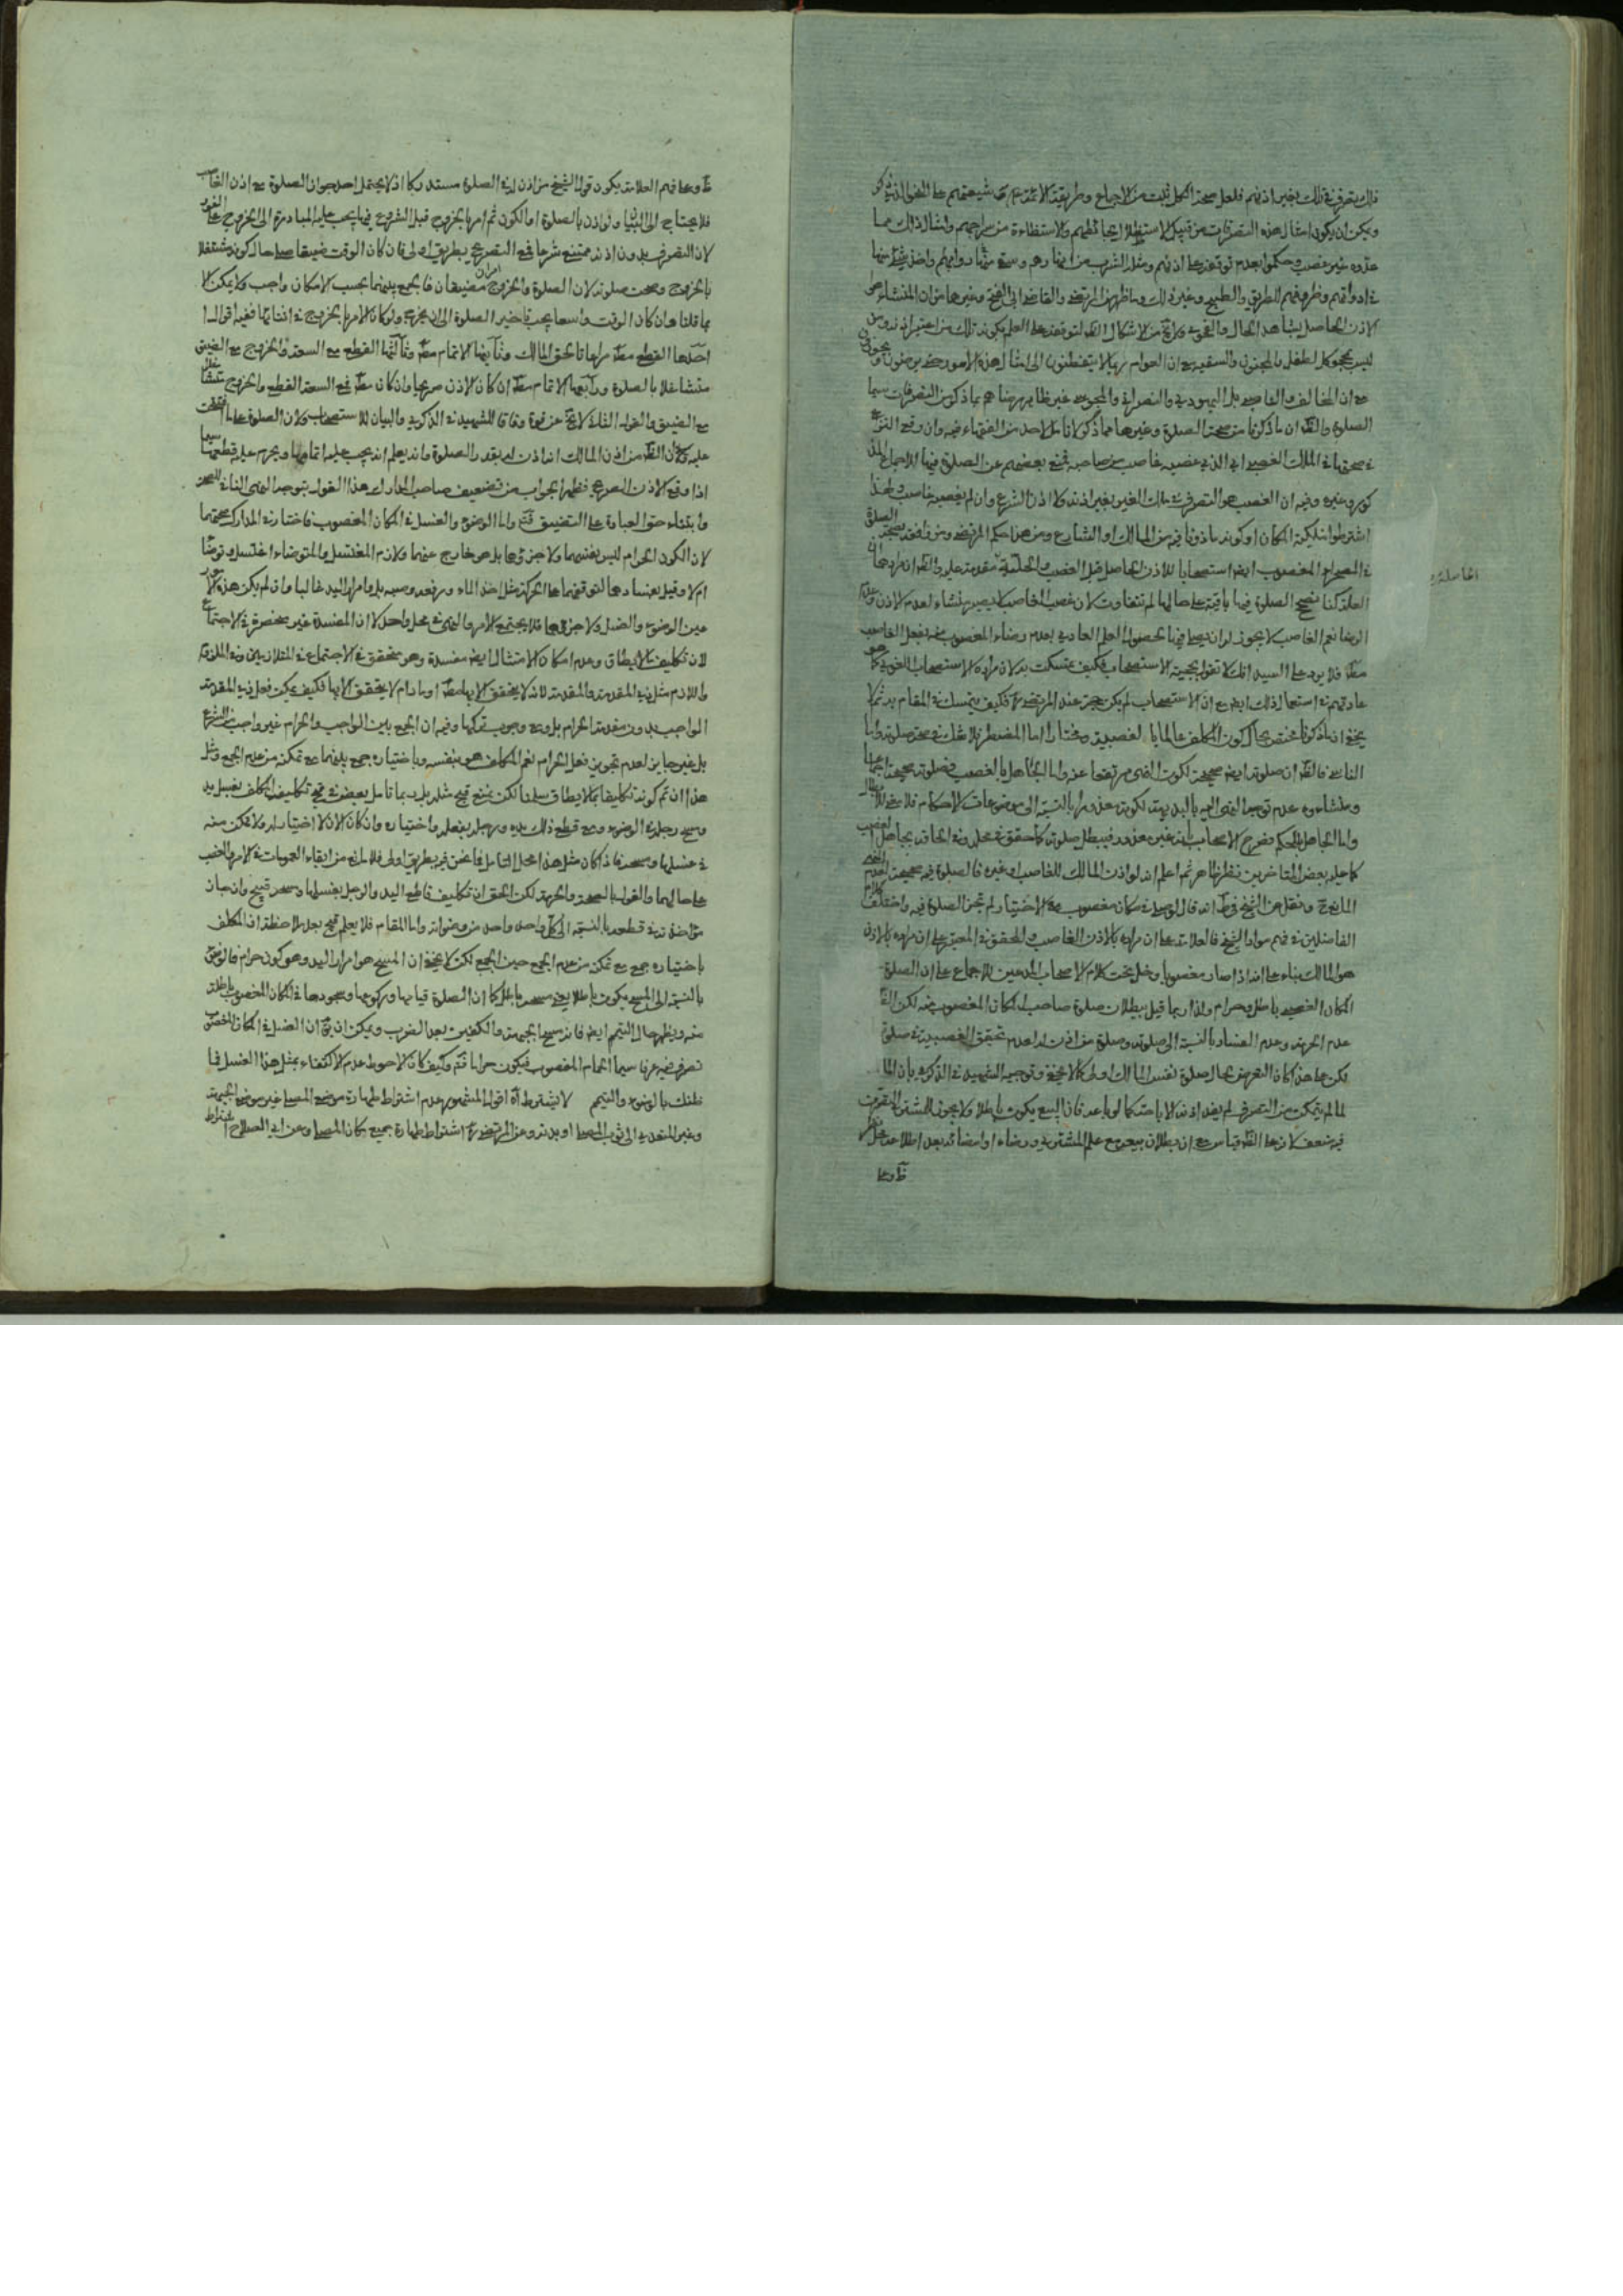 فالتصرف في ذلك بغير اذنهم فلعل صحة الكل ثبت من الاجماع وطريقة الائمة مع شيعتهم على النحو الذي ذكر
ويمكن ان يكون امثال هذه التصرفات من قبيل الاستظلال بحائطهم والاستضاءة من سراجهم وامثال ذلك مما
عدوه غير غصب وحكموا بعدم توقفه على اذنهم ومثله الشرب من انهارهم وسقي دوابهم واخذ شيء منها
في ادوانهم وظروفهم للطريق والطبخ وغير ذلك وما ظهر من المرتضى والقاضي ابي الفتح وغيرهما من ان المنشاء هو
الاذن الحاصل بشاهد الحال والفحوى لا يخ من الاشكال
ليس محجوكا كالطفل والمجنون والسفيه مع ان العوام ربما لا يتفطنون الى امثال هذه الامور حتى يرضون او
مع ان المخالف والناصبي بل اليهودي والنصراني والمجوسي غير ظاهر رضاهم بما ذكر من التصرفات سيما
الصلوة والظ ان ما ذكرنا من صحة الصلوة وغيرها مما ذكر لا تامل لاحد من الفقهاء فيه وان وقع النزاع
في صحتها في الملك الغصبي اي الذي غصبه غاصب من صاحبه فمنع بعضهم عن الصلوة فيها للاجماع المذ
كور وغيره وفيه ان الغصب هو التصرف في ملك الغير بغير اذنه ولا اذن الشرع وان لم يغصبه غاصب ولهذا
اشترطوا ملكية المكان او كونه ماذونا فيه من المالك او الشارع ومن هنا حكم المرتضى ومن وافقه بصحة الصلوة
في الصحراء المغصوب ايضا استصحابا للاذن الحاصل قبل الغصب
الحاصلة
العلة كنا نصحح الصلوة فيها باقية على حالها لم تتفاوت لان غصب الغاصب لا يصير منشاء لعدم الاذن وعدم
الرضا نعم الغاصب لا يجوز له ان يصلي فيها لحصول العلم العادي بعدم رضاء المغصوب منه بفعل الغاصب
مطلقا فلا يرد على السيد انك لا تقول بحجية الاستصحاب فكيف تمسكت به لان مراده الاستصحاب اللغوي كما هو
عادتهم في استعمال ذلك ايضا مع ان الاستصحاب لم يكن حجة عند المرتضى فكيف يتمسك في المقام به ثم لا
يخفى ان ما ذكرنا مختص بحال كون المكلف عالما بالغصبية ومختارا اما المضطر فلا شك في صحة صلوته واما
الناسي فالظ ان صلوته ايضا صحيحة لكون النهي مرتفعا عنه واما الجاهل بالغصب فصلوته صحيحة اجماعا
ومنشاءه عدم توجه النهي اليه بالبديهة لكونه معذورا بالنسبة الى موضوعات الاحكام
واما الجاهل بالحكم فصرح الاصحاب بانه غير معذور فيبطل صلوته كما حقق في محله وفي الحاقه بجاهل الغصب
كما عليه بعض المتاخرين نظر ظاهر ثم اعلم انه لو اذن المالك للغاصب او غيره فالصلوة فيه صحيحة لعدم
المانع ونقل عن الشيخ في ط انه قال لو صلى في مكان مغصوب مع الاختيار لم تجز الصلوة فيه واختلف كلام
الفاضلين في فهم مراد الشيخ فالعلامة على ان مراده بالاذن الغاصب والمحقق في المعتبر على ان مراده بالاذن
هو المالك بناء على انه اذا صار مغصوبا دخل تحت كلام الاصحاب المدعين للاجماع على ان الصلوة
المكان الغصبي باطل وحرام ولذا ربما قيل ببطلان صلوة صاحب المكان المغصوب منه لكن الظ
عدم الحرمة وعدم الفساد بالنسبة الى صلوته وصلوة من اذن له لعدم تحقق الغصبية في صلوة
لكن على هذا كان التعرض بحال صلوة نفس المالك اولى كما لا يخفى وتوجيه الشهيد في الذكرى بان المالك
لما لم يتمكن من التصرف لم يفد اذنه الاباحة كما لو باعه فان البيع يكون باطلا ولا يجوز للمشتري التصرف
فيه ضعف لان هذا القياس مع ان بطلان بيعه مع علم المشتري ورضاه او امضائه بعد اطلاعه محل نظر
ظ وعلى
ظ وعلى فهم العلامة يكون قول الشيخ من اذن له في الصلوة مستدركا اذ لا يحتمل احد جواز الصلوة مع اذن الغاصب
فلا يحتاج الى البيان ولو اذن بالصلوة او الكون ثم امر بالخروج قبل الشروع فيها يجب عليه المبادرة الى الخروج على الفور
لان التصرف بدون اذنه ممتنع شرعا فمع التصريح بطريق اولى فان كان الوقت ضيقا صلى حال كونه متشغلا
بالخروج وصحت صلوته لان الصلوة والخروج امران مضيقان فالجمع بينهما بحسب الامكان واجب ولا يمكن الا
بما قلنا وان كان الوقت واسعا يجب تاخير الصلوة الى ان يخرج ولو كان الامر بالخروج في اثنائها ففيه اقوال
احدها القطع مطلقا مراعاتا لحق المالك وثانيها الاتمام مطلقا وثالثها القطع مع السعة والخروج مع الضيق
متشاغلا بالصلوة ورابعها الاتمام مطلقا ان كان الاذن صريحا وان كان مطلقا فمع السعة القطع والخروج متشاغلا
مع الضيق والقول الثالث لا يخ عن قوة وفاقا للشهيد في الذكرى والبيان للاستصحاب ولان الصلوة على ما افتتحت
عليه ولان الظ من اذن المالك انه اذن له بقدر الصلوة وانه يعلم انه يجب عليه اتمامها ويحرم عليه قطعها سيما
اذا وقع الاذن الصريح فظهر الجواب من تضعيف صاحب المدارك هذا القول بتوجه النهي المنافي للصحة
وابتناء حق العبادة على التضييق فتأمل واما الوضوء والغسل في المكان المغصوب فاختار في المدارك صحتهما
لان الكون الحرام ليس نفسهما ولا جزؤهما بل هو خارج عنهما ولازم المغتسل والمتوضئ اغتسل وتوضأ
ام لا وقيل بفسادهما لتوقفهما على الحركة مثل اخذ الماء ورفعه وصبه بل وامرار اليد غالبا وان لم يكن هذه الامور
عين الوضوء والغسل ولا جزؤهما فلا يجتمع الامر والنهي في محل واحد لان المفسدة غير منحصرة في الاجتماع
لان تكليف ما لا يطاق وعدم امكان الامتثال ايضا مفسدة وهو متحقق في الاجتماع في المتلازمين وفي الملزوم
واللازم مثل ذي المقدمة والمقدمة لانه لا يتحقق الا بها مطلقا او ما دام لا يتحقق الا بها فكيف يمكن فعل ذي المقدمة
الواجب بدون مقدمته الحرام بل ومع وجوب تركها وفيه ان الجمع بين الواجب والحرام غير واجب في الشرع
بل غير جايز لعدم تجويز فعل الحرام نعم المكلف هو بنفسه وباختياره جمع بينهما مع تمكنه من عدم الجمع ومثل
هذا ان تم كونه تكليفا بما لا يطاق سلمنا لكن يمنع قبح مثله بل ربما تامل بعض في قبح تكليف المكلف بغسل يد
ومسح رجله في الوضوء ومع قطع ذلك يده ورجله بفعله واختياره وان كان الان لا اختيار له ولا يمكن منه
في غسلها ومسحه فاذا كان مثل هذا محل التامل فما نحن فيه بطريق اولى فلا مانع من ابقاء العمومات في الامر والنهي
على حالهما والقول بالصحة والحرمة لكن الحق ان تكليف قاطع اليد والرجل بغسلها ومسحه قبيح وان جاز
مؤاخذته في قطعه بالنسبة الى كل واحد واحد من وضوءاته واما المقام فلا يعلم قبح بعد ملاحظة ان المكلف
باختياره جمع مع تمكنه من عدم الجمع حين الجمع لكن لا يخفى ان المسح هو امرار اليد وهو كون حرام فالوضوء
بالنسبة الى المسح يكون باطلا يعني مسحه باطل كما ان الصلوة قيامها وركوعها وسجودها في المكان المغصوب باطلة
منه ويظهر حال التيمم ايضا فانه مسح الجبهة والكفين بعد الضرب ويمكن ان يق ان الغسل في المكان المغصوب
تصرف فيه عرفا سيما الحمام المغصوب فيكون حراما فتأمل وكيف كان الاحوط عدم الاكتفاء بمثل هذا الغسل فما
ظنك بالوضوء والتيمم لا يشترط آه اقول المشهور عدم اشتراط طهارة موضع المصلي غير موضع الجبهة
وغير المتعدية الى ثوب المصلي او بدنه وعن المرتضى اشتراط طهارة جميع مكان المصلي وعن ابي الصلاح اشتراط